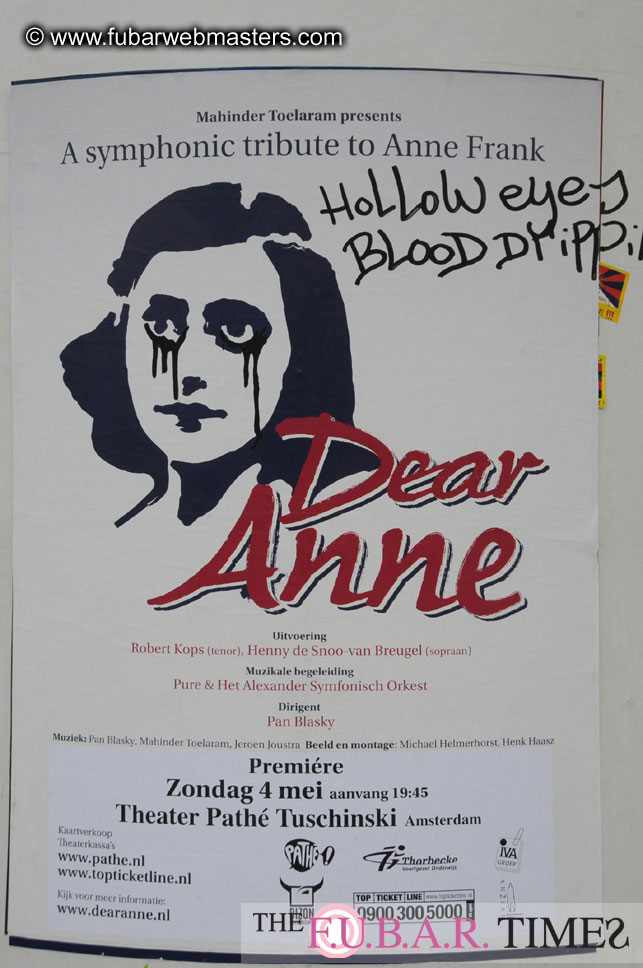 © www.fubarwebmasters.com
Mahinder Toelaram presents
A symphonic tribute to Anne Frank
Hollow eyes
BLOOD Drippi
Dear
Anne
Uitvoering
Robert Kops (tenor), Henny de Snoo-van Breugel (sopraan)
Muzikale begeleiding
Pure & Het Alexander Symfonisch Orkest
Dirigent
Pan Blasky
Muziek: Pan Blasky, Mahinder Toelaram, Jeroen Joustra Beeld en montage: Michael Helmerhorst, Henk Haasz
Premiére
Zondag 4 mei aanvang 19:45
Theater Pathé Tuschinski Amsterdam
Kaartverkoop
Theaterkassa's
www.pathe.nl
www.topticketline.nl
Kijk voor meer informatie:
www.dearanne.nl
PATHE
Thorbecke
Voortgezet Onderwijs
IVA
GROEP
TOP TICKET LINE www.topticketline.nl
0900 300 5000
THE F.U.B.A.R. TIMES